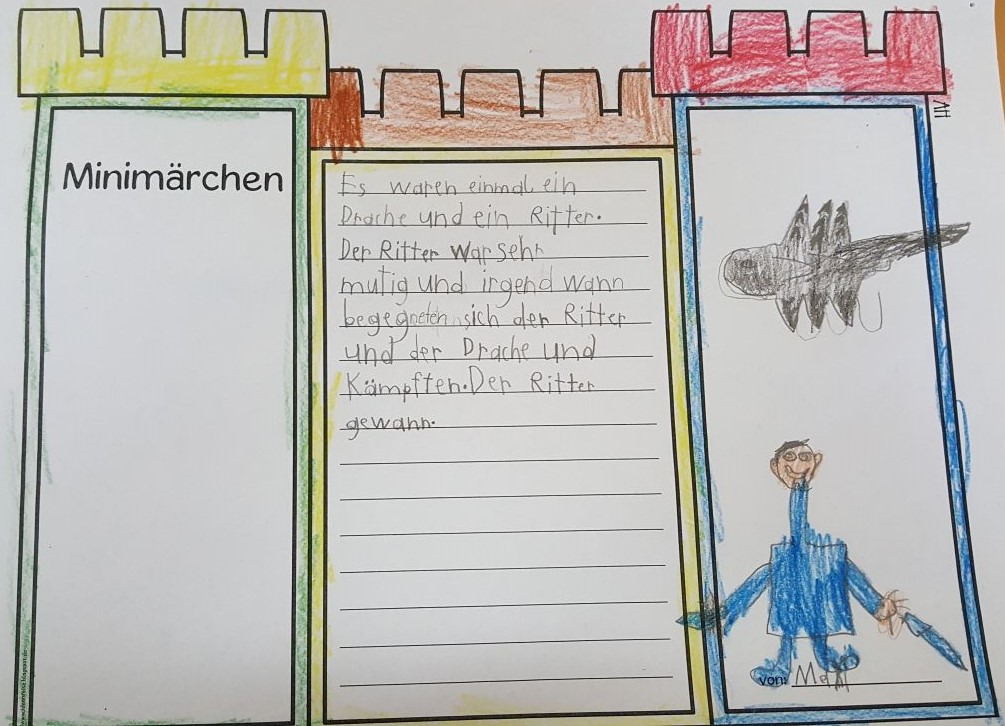 Minimärchen
Es waren einmal ein
Drache und ein Ritter.
Der Ritter war sehr
mutig und irgend wann
begegneten sich der Ritter
und der Drache und
Kämpften. Der Ritter
gewann.
von: Max